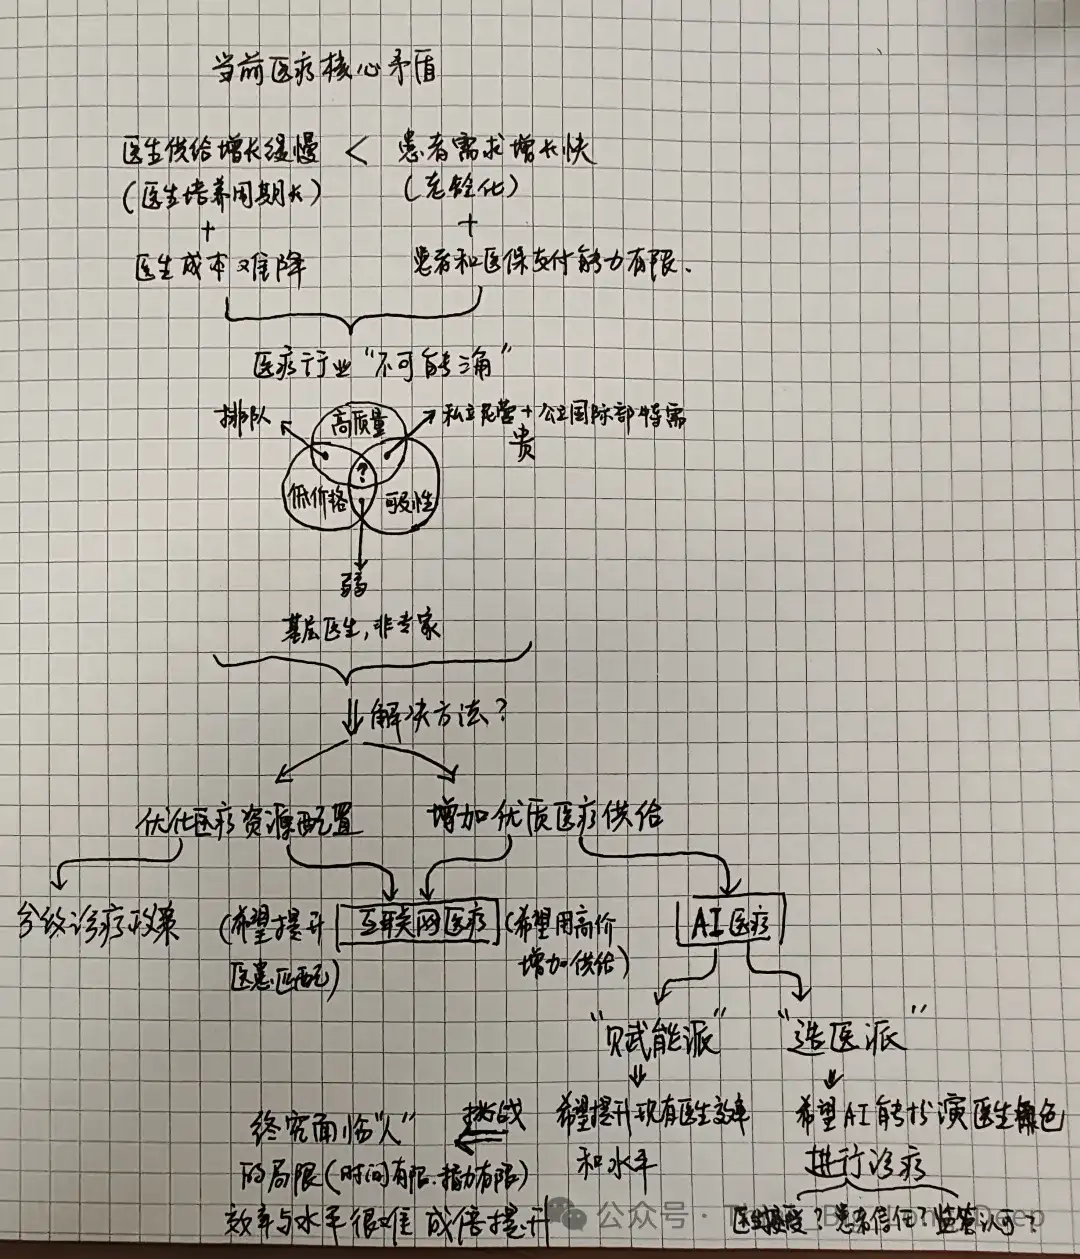 当前医疗核心矛盾
医生供给增长缓慢 < 患者需求增长快
(医生培养周期长) (老龄化)
+ +
医生成本难降 患者和医保支付能力有限.
医疗行业“不可能三角”
排队 高质量 私立民营+公立国际部特需
贵
?
低价格 可及性
弱
基层医生,非专家
解决方法?
优化医疗资源配置 增加优质医疗供给
分级诊疗政策 (希望提升 互联网医疗 (希望用高价 AI医疗
医患匹配) 增加供给)
“赋能派” “造医派”
终究面临“人” 挑战 希望提升现有医生效率 希望AI能扮演医生角色
的局限(时间有限.精力有限) 和水平 进行诊疗
效率与水平很难成倍提升 医生接受?患者信任?监管认可?
公众号